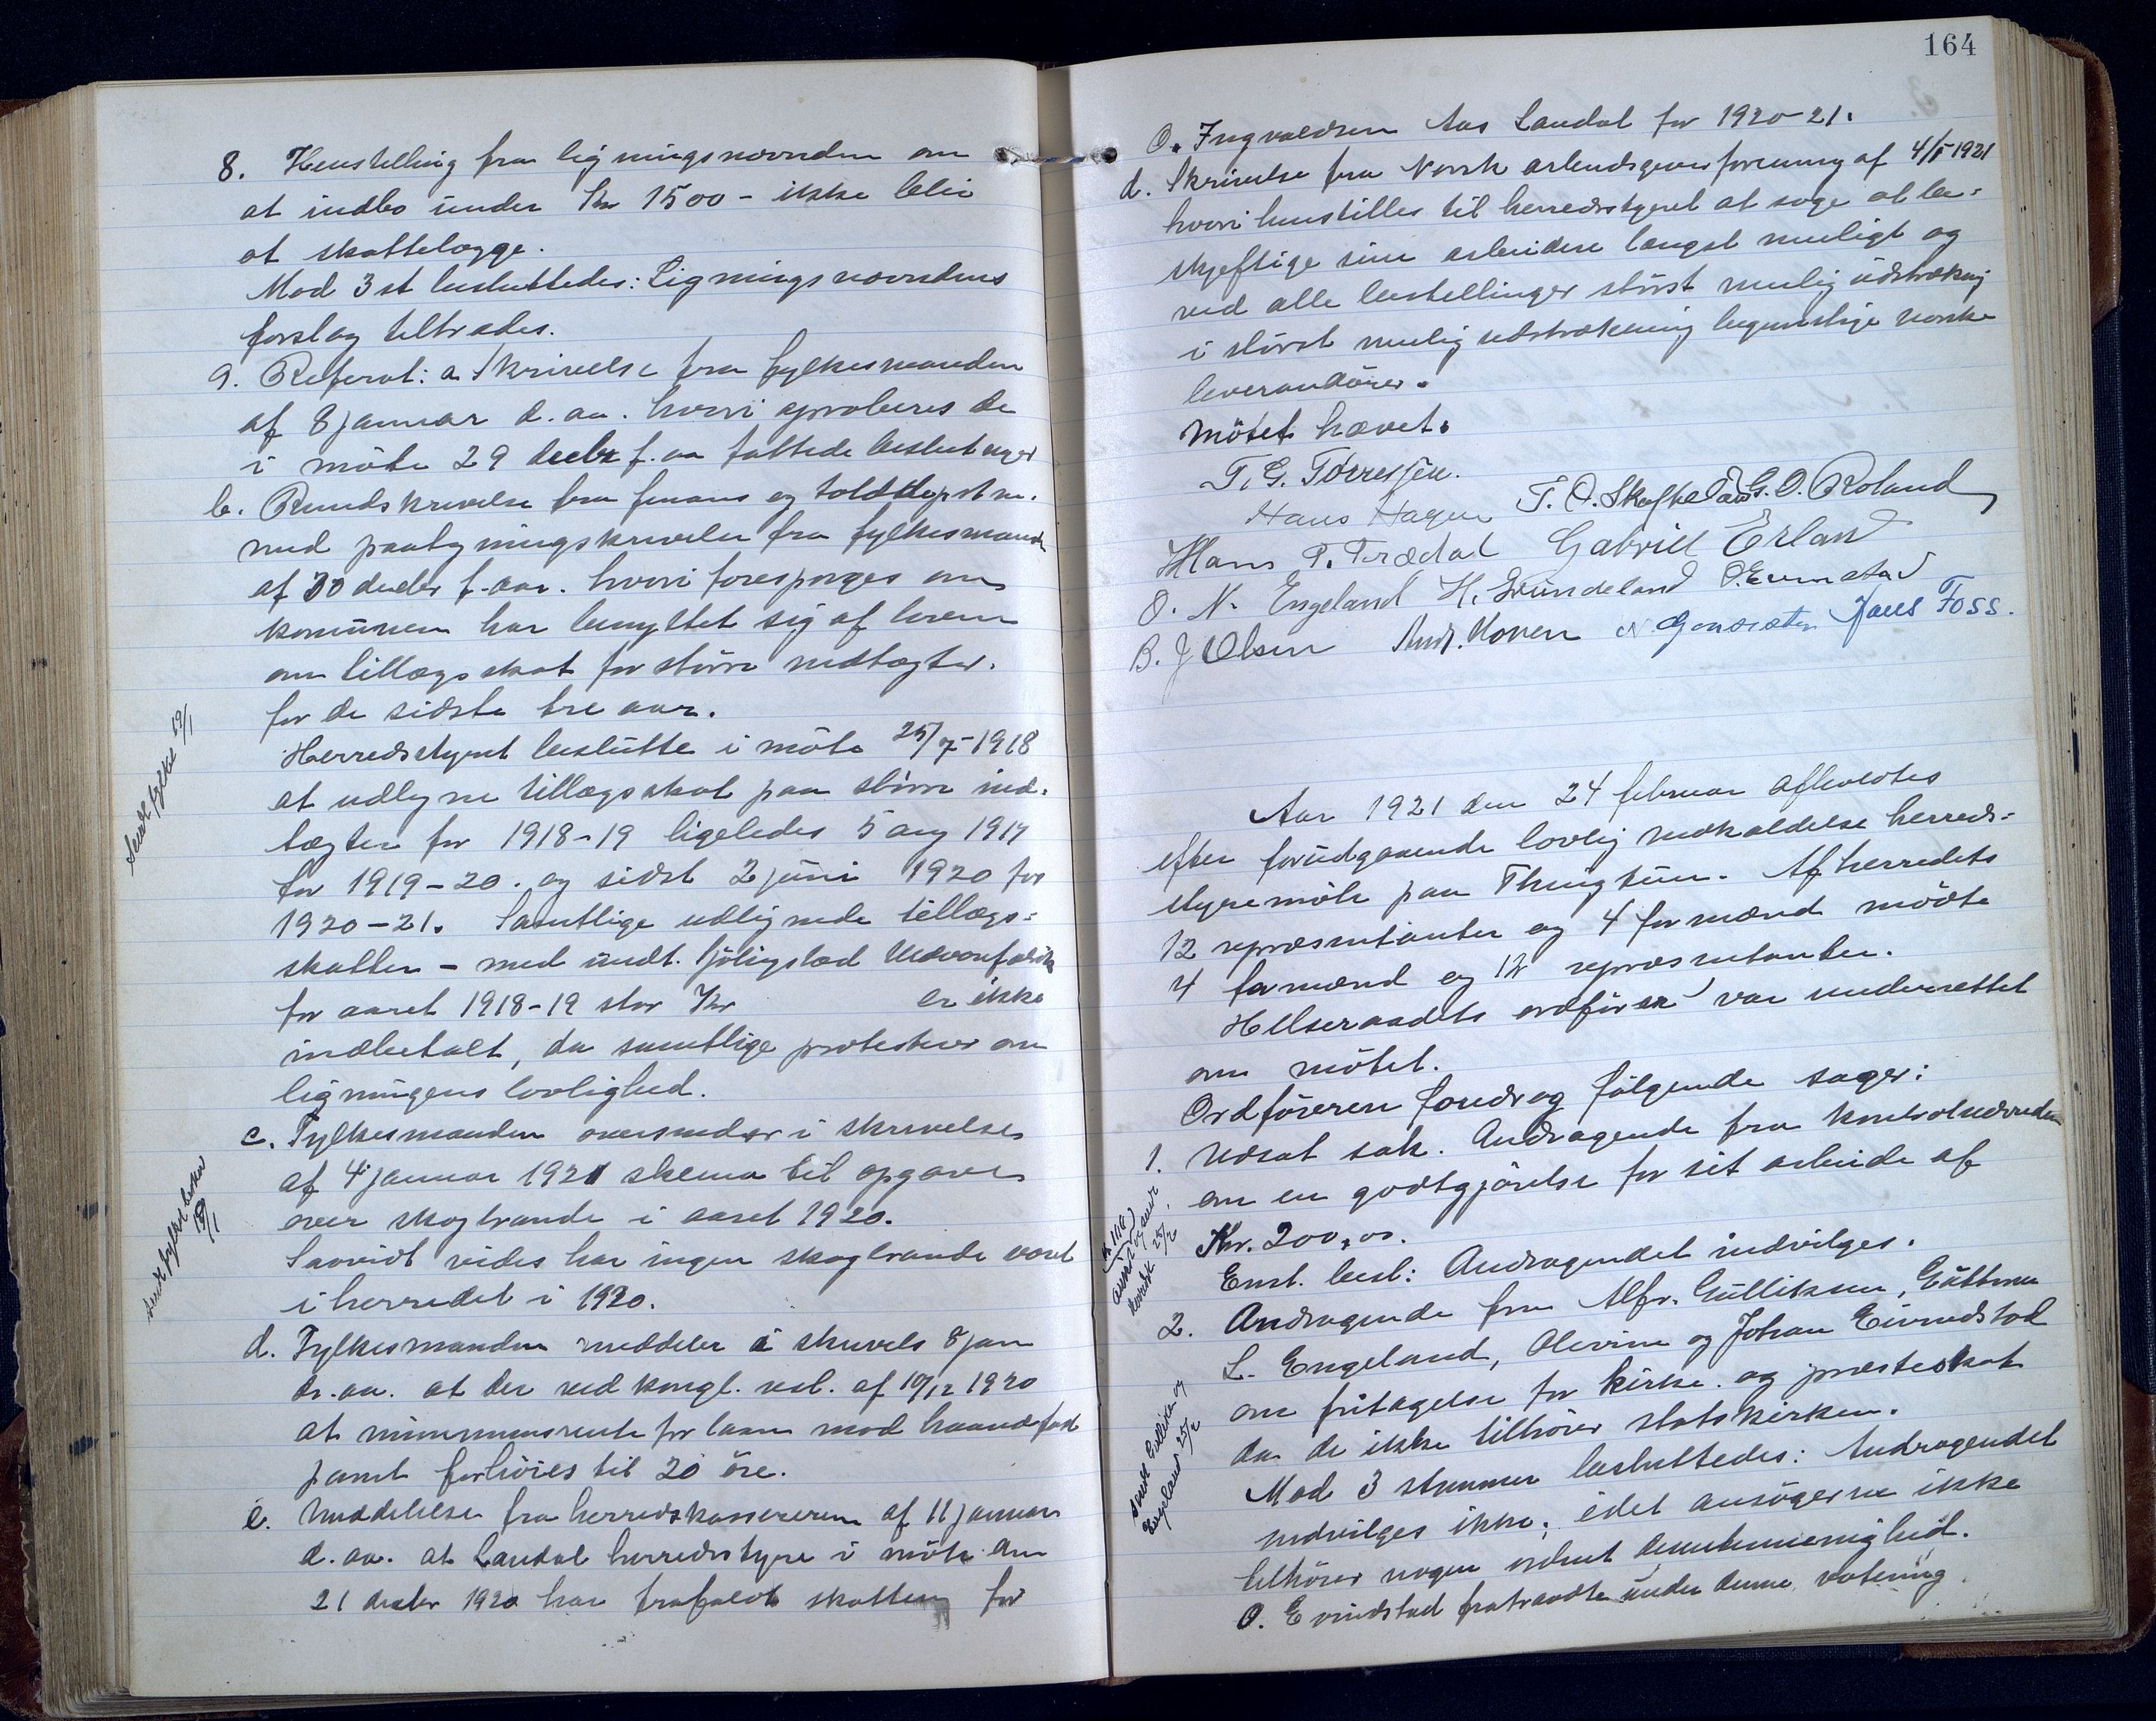 8. Henstilling fra ligningsnævnden om
at indbo under Kr 1500 - ikke blir
at skattelægge.
Mod 3 st besluttedes: Ligningsnævndens
forslag tiltrædes.
9. Referat: a Skrivelse fra fylkesmanden
af 8 januar d. aa. hvori aproberes de
i møte 29 decbr f. aa fattede beslutninger
b. Rundskrivelse fra finans og tolddepartm.
med paategningskrivelse fra fylkesmand
af 30 decbr f. aar. hvori foresporges om
komunen har benyttet sig af loven
om tillægsskat for större indtægter.
for de sidste tre aar.
Sendt fylke 19/1
Herredstyret beslutte i möte 25/7-1918
at udlegne tillægsskat paa større ind-
tægter for 1918-19 ligeledes 5 aug 1919
for 1919-20. og sidst 2 juni 1920 for
1920-21. Samtlige udlignede tillægs-
skatter - med undt. Fjöligstad Uldvarefabrik
for aaret 1918-19 stor Kr er ikke
indbetalt, da samtlige protesterer om
ligningens lovlighed.
c. Fylkesmanden oversender i skrivelse
af 4 januar 1921 skema til opgave
over skogbrande i aaret 1920.
Sendt fylkesskogk 19/1
Saavidt vides har ingen skogbrande været
i herredet i 1920.
d. Fylkesmanden meddeler i skrivels 8 jan
d. aa. at der ved kongl. resl. af 10/12 1920
at minimumsrente for laan mod haandfaat
pant forhöies til 20 öre.
e. Meddelelse fra herredskassereren af 11 januar
d. aa. at Laudal herredsstyre i møte den
21 decbr 1920 har frafaldt skatten for
164
O. Ingvaldsen Aas Laudal for 1920-21.
d. Skrivelse fra Norsk arbeidsgiverforening af 4/1 1921
hvori henstilles til herredsstyret at søge at be-
skjeftige sine arbeidere længst muligt og
ved alle bestellinger störst mulig udstrækning
i störst mulig udstrækning begunstige norske
leverandører.
Mötet hævet.
T. G. Tørressen.
Hans Hagen T. O. Skofteland G. O. Roland
Hans T. Trædal Gabriel Erland
O. N. Engeland H. Sundeland O. Evindstad
B. J Olsen Andr. Koven Hans Foss.
Aar 1921 den 24 februar afholdtes
efter forudgaaende lovlig indkaldelse herreds-
styremöte paa Thingtun. Af herredets
12 repræsentanter og 4 formænd møtte
4 formænd og 12 repræsentanter.
Helseraadets ordförer var underrettet
om mötet.
Ordføreren foredrog følgende sager:
1. Udsat sak. Andragende fra kontrolnævnden
om en godtgjörelse for sit arbeide af
Kr. 200,00.
anvist og sendt kontrolk 25/2
Enst. besl: Andragendet indvilges.
2. Andragende fra Alfr. Gulliksen, Guttorm
L. Engeland, Olevine og Johan Eivindstad
om fritagelse for kirke. og præsteskat
da de ikke tilhører statskirken.
Sendt Gulliksen og Engeland 25/2
Mod 3 stemmer besluttedes: Andragendet
indvilges ikke, idet ansøgerne ikke
tilhører nogen ordnet dissentermenighed.
O. Evindstad fratraadte under denne votering.